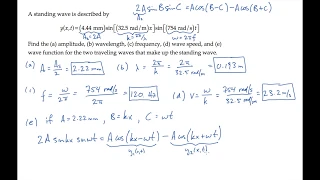 2A sinB sinC = A cos(B-C) - A cos(B+C)
A standing wave is described by
y(x,t)=(4.44 mm)sin[(32.5 rad/m)x]sin[(754 rad/s)t]
As=2A k=2π/λ ω=2πf
Find the (a) amplitude, (b) wavelength, (c) frequency, (d) wave speed, and (e)
wave function for the two traveling waves that make up the standing wave.
(a) A = As/2 = 2.22 mm (b) λ = 2π/k = 2π/32.5 rad/m = 0.193 m
(c) f = ω/2π = 754 rad/s / 2π = 120 Hz (d) v = ω/k = 754 rad/s / 32.5 rad/m = 23.2 m/s
(e) if A=2.22mm, B=kx, C=ωt
2A sinkx sinωt = A cos(kx-ωt) - A cos(kx+ωt)
y1(x,t) y2(x,t)